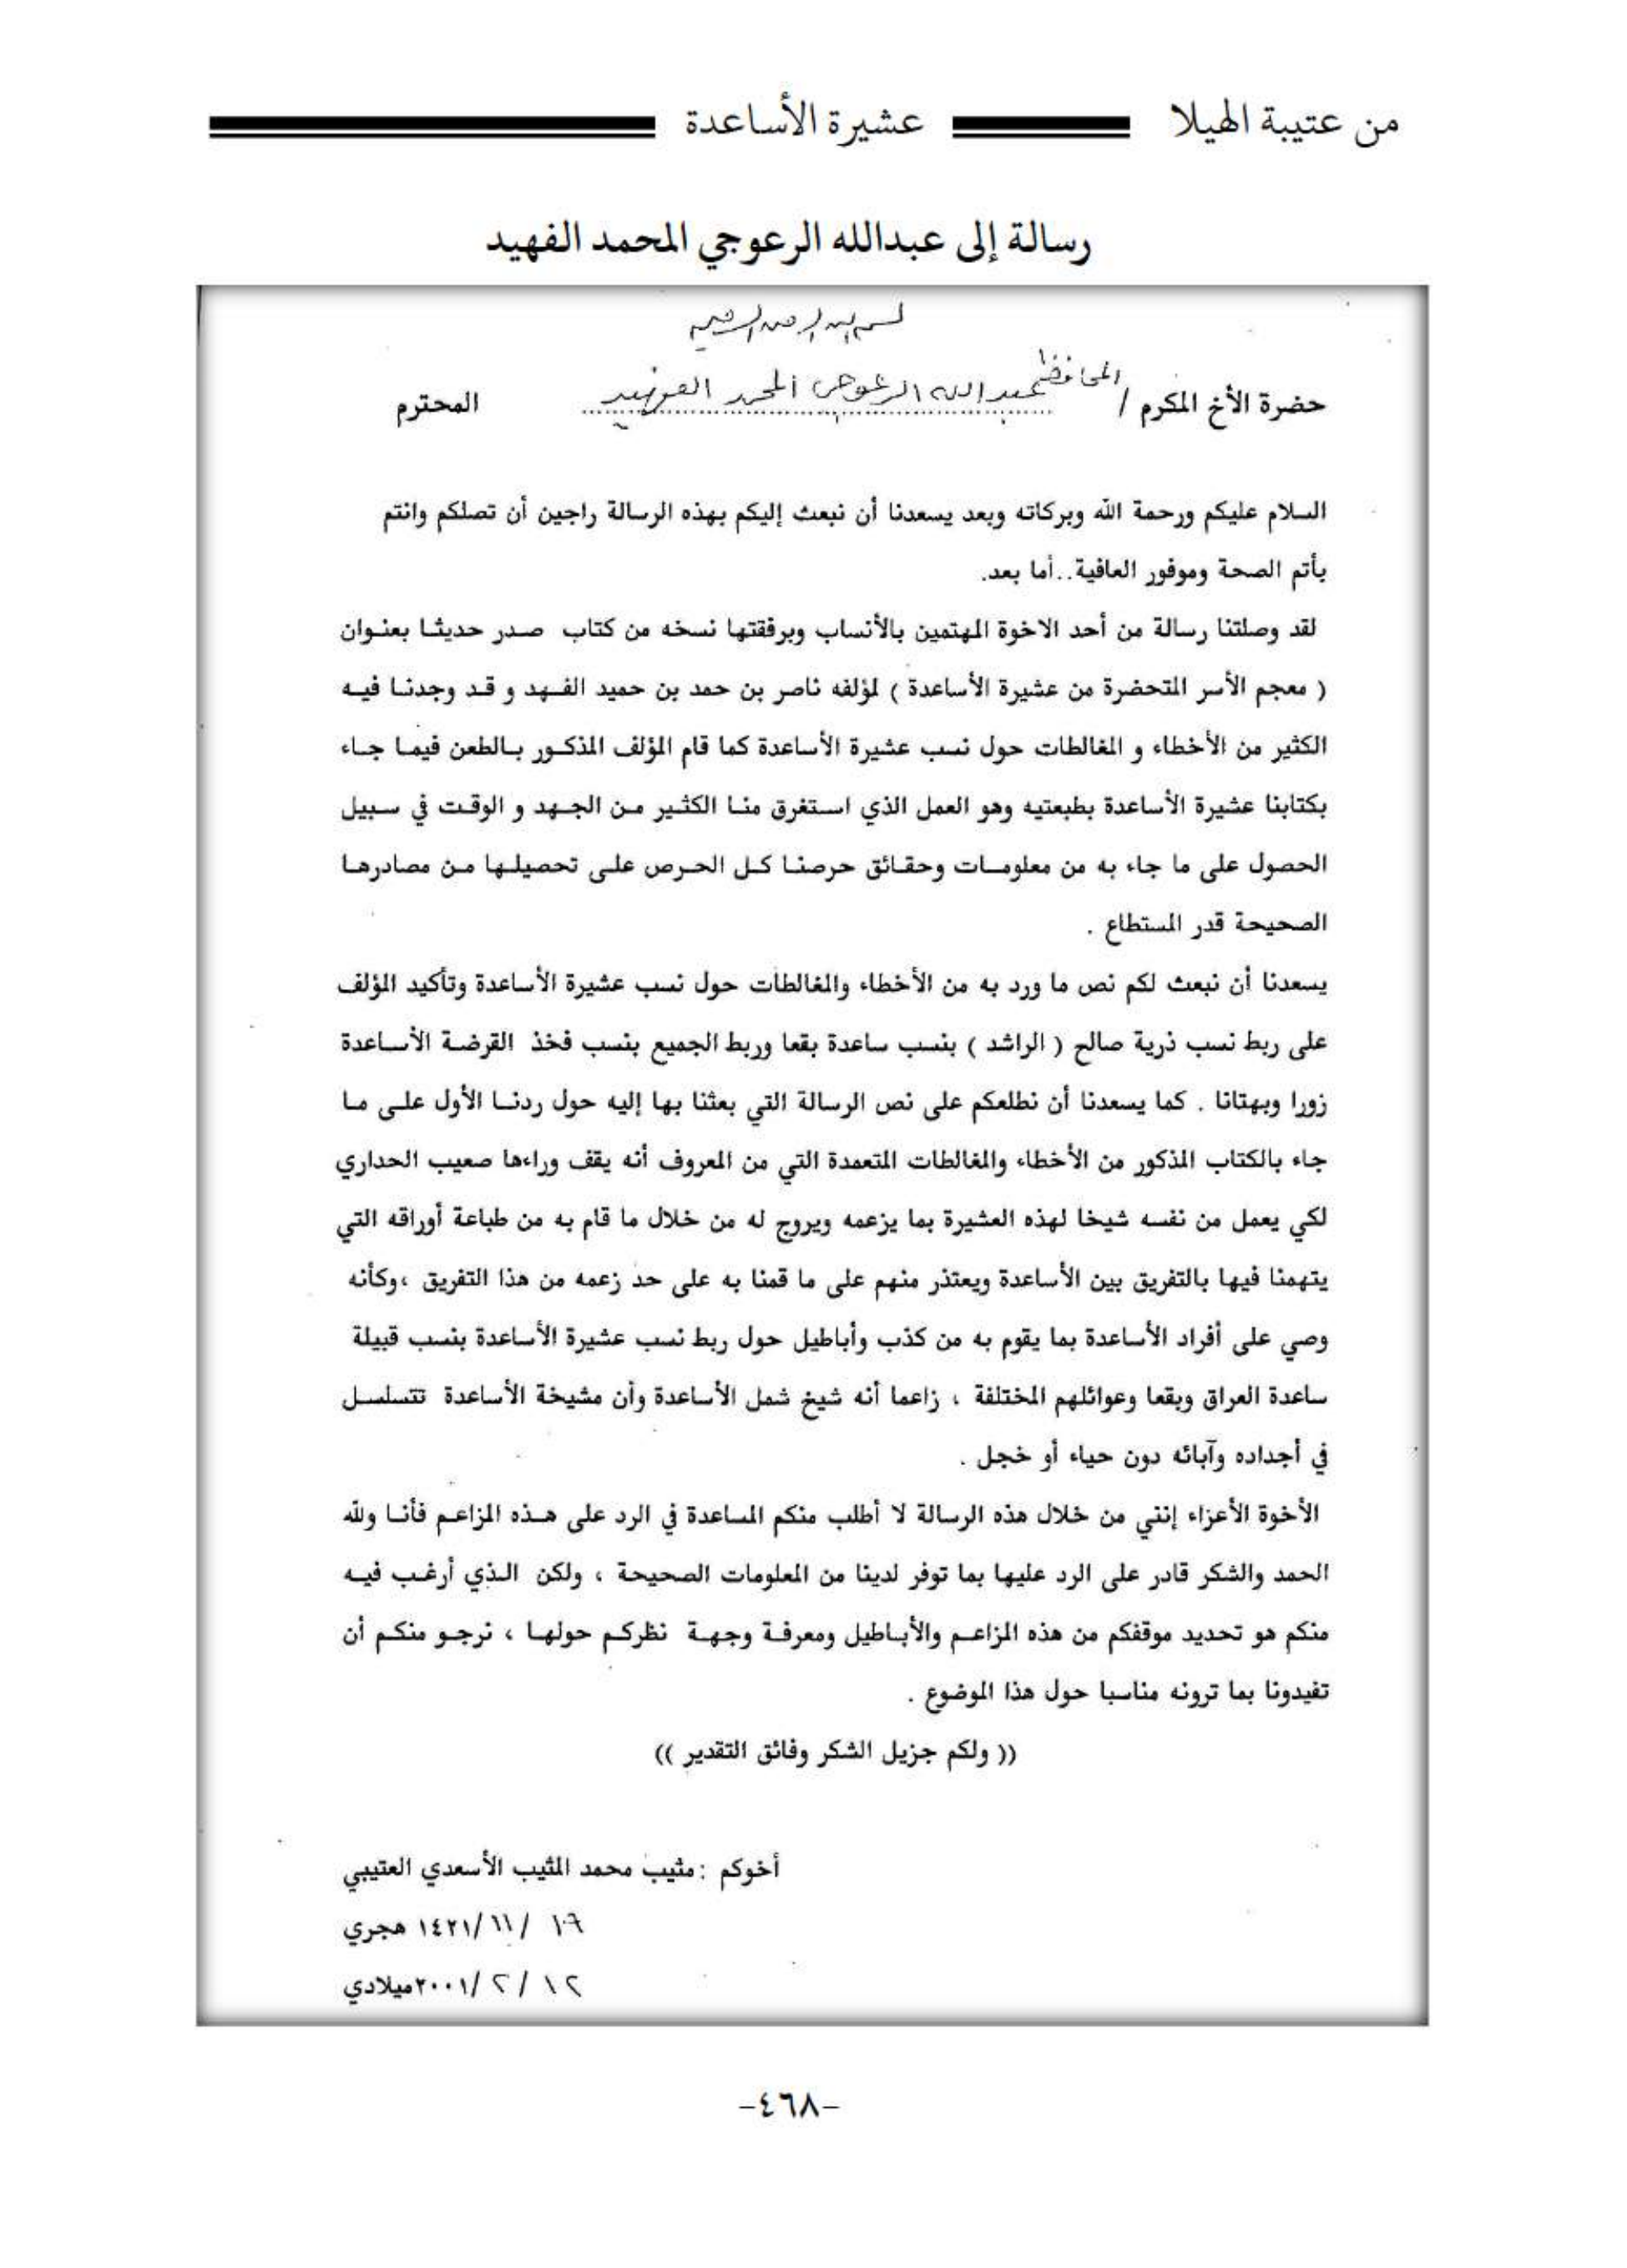 من عتيبة الهيلا عشيرة الأساعدة
رسالة إلى عبدالله الرعوجي المحمد الفهيد
بسم الله الرحمن الرحيم
حضرة الأخ المكرم / المحافظ عبدالله الرعوجي المحمد الفهيد المحترم
السلام عليكم ورحمة الله وبركاته وبعد يسعدنا أن نبعث إليكم بهذه الرسالة راجين أن تصلكم وانتم
بأتم الصحة وموفور العافية..أما بعد.
لقد وصلتنا رسالة من أحد الاخوة المهتمين بالأنساب وبرفقتها نسخه من كتاب صدر حديثا بعنوان
( معجم الأسر المتحضرة من عشيرة الأساعدة ) لمؤلفه ناصر بن حمد بن حميد الفهد و قد وجدنا فيه
الكثير من الأخطاء و المغالطات حول نسب عشيرة الأساعدة كما قام المؤلف المذكور بالطعن فيما جاء
بكتابنا عشيرة الأساعدة بطبعتيه وهو العمل الذي استغرق منا الكثير من الجهد و الوقت في سبيل
الحصول على ما جاء به من معلومات وحقائق حرصنا كل الحرص على تحصيلها من مصادرها
الصحيحة قدر المستطاع .
يسعدنا أن نبعث لكم نص ما ورد به من الأخطاء والمغالطات حول نسب عشيرة الأساعدة وتأكيد المؤلف
على ربط نسب ذرية صالح ( الراشد ) بنسب ساعدة بقعا وربط الجميع بنسب فخذ القرضة الأساعدة
زورا وبهتانا . كما يسعدنا أن نطلعكم على نص الرسالة التي بعثنا بها إليه حول ردنا الأول على ما
جاء بالكتاب المذكور من الأخطاء والمغالطات المتعمدة التي من المعروف أنه يقف وراءها صعيب الحداري
لكي يعمل من نفسه شيخا لهذه العشيرة بما يزعمه ويروج له من خلال ما قام به من طباعة أوراقه التي
يتهمنا فيها بالتفريق بين الأساعدة ويعتذر منهم على ما قمنا به على حد زعمه من هذا التفريق ،وكأنه
وصي على أفراد الأساعدة بما يقوم به من كذب وأباطيل حول ربط نسب عشيرة الأساعدة بنسب قبيلة
ساعدة العراق وبقعا وعوائلهم المختلفة ، زاعما أنه شيخ شمل الأساعدة وأن مشيخة الأساعدة تتسلسل
في أجداده وآبائه دون حياء أو خجل .
الأخوة الأعزاء إنني من خلال هذه الرسالة لا أطلب منكم المساعدة في الرد على هذه المزاعم فأنا ولله
الحمد والشكر قادر على الرد عليها بما توفر لدينا من المعلومات الصحيحة ، ولكن الذي أرغب فيه
منكم هو تحديد موقفكم من هذه المزاعم والأباطيل ومعرفة وجهة نظركم حولها ، نرجو منكم أن
تفيدونا بما ترونه مناسبا حول هذا الموضوع .
(( ولكم جزيل الشكر وفائق التقدير ))
أخوكم :مثيب محمد المثيب الأسعدي العتيبي
/ ١١/ ١٤٢١ هجري
١٢ / ٢ /٢٠٠١ميلادي
-٤٦٨-